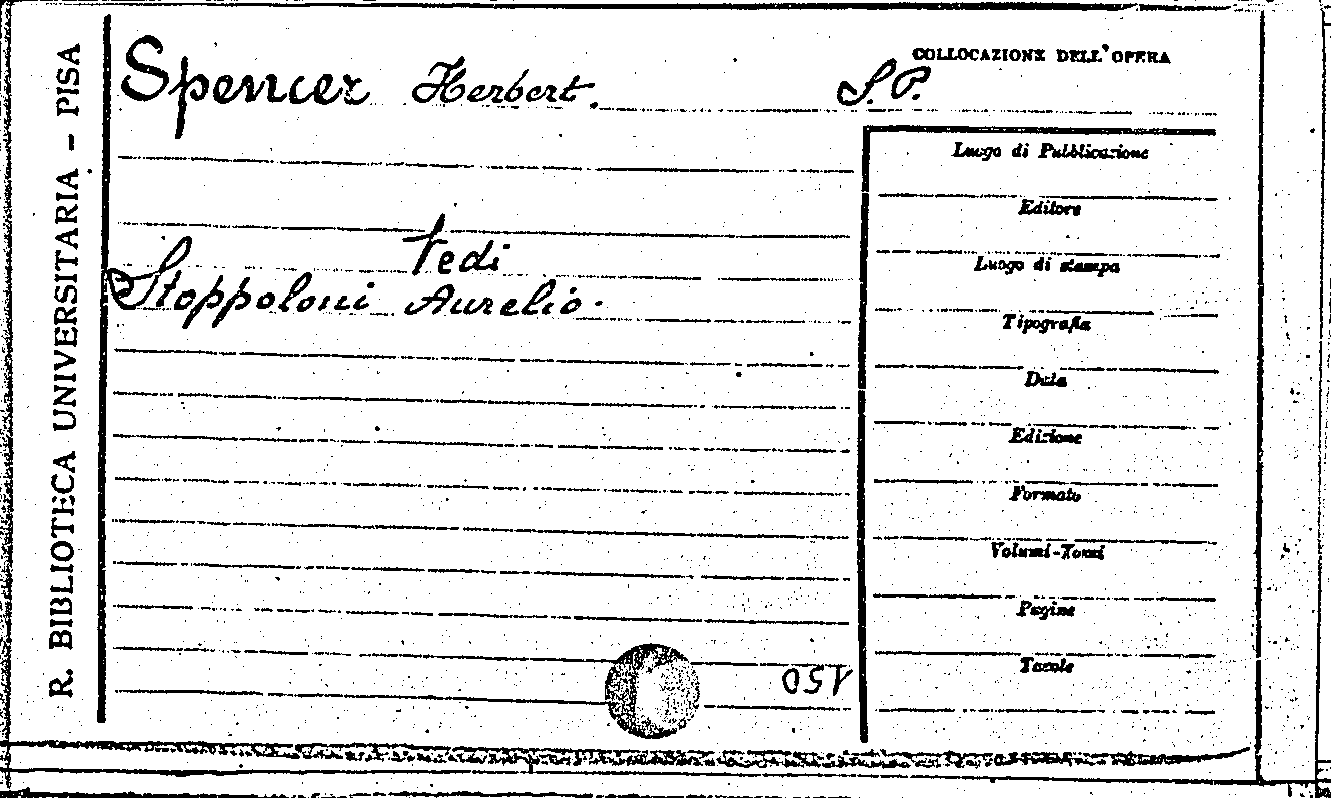 R. BIBLIOTECA UNIVERSITARIA - PISA
COLLOCAZIONE DELL'OPERA
Spencer Herbert.
S. P.
Luogo di Pubblicazione
Editore
Vedi
Luogo di stampa
Stoppoloni Aurelio.
Tipografia
Data
Edizione
Formato
Volumi-Tomi
Pagine
Tavole
150